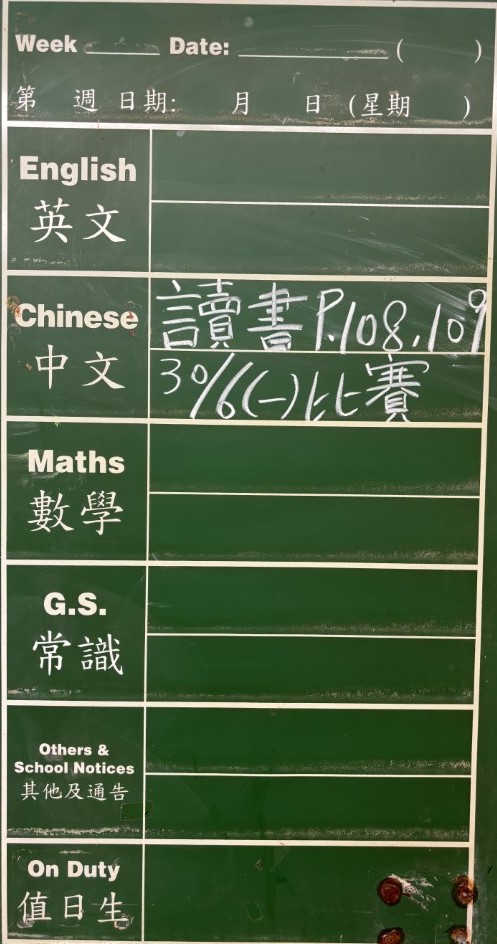 Week ______ Date: ____________ (      )
第 週 日期: 月 日 (星期 )
English
英文
Chinese
讀書 P.108,109
中文
30/6(一)比賽
Maths
數學
G.S.
常識
Others &
School Notices
其他及通告
On Duty
值日生